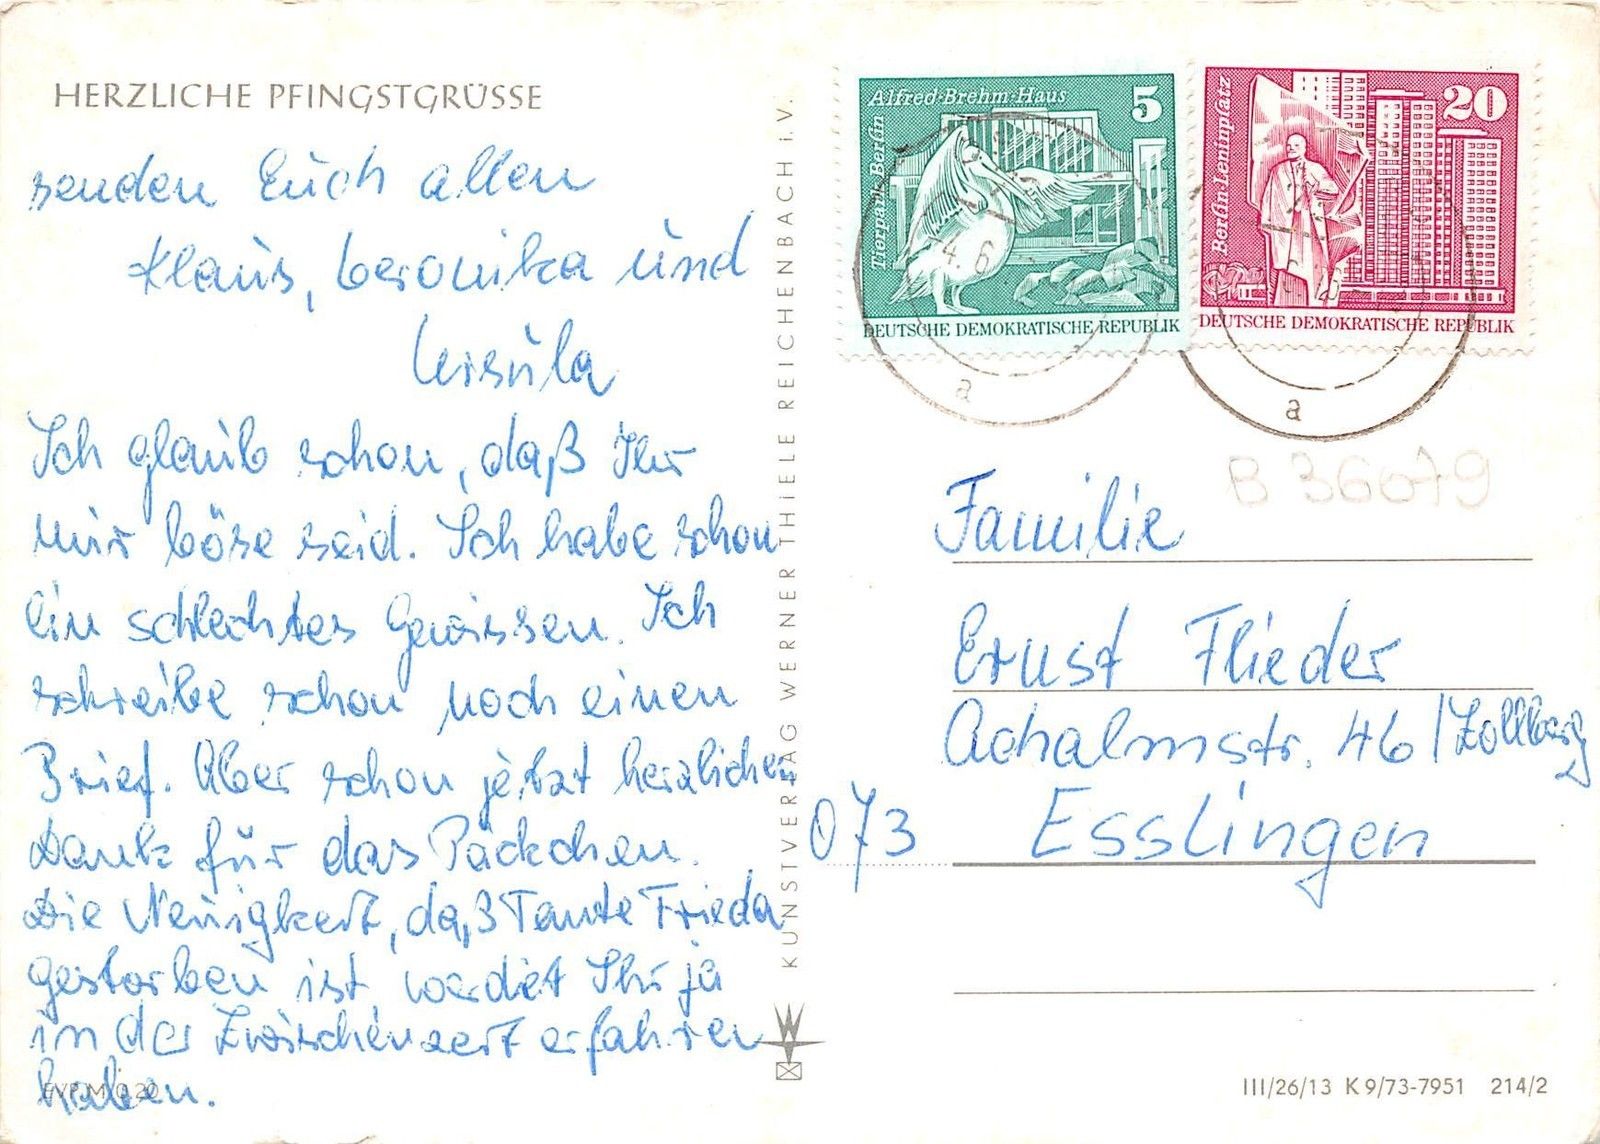 HERZLICHE PFINGSTGRÜSSE
senden Euch allen
Klaus, Veronika und
Ursula
Ich glaub schon, daß Ihr
mir böse seid. Ich habe schon
ein schlechtes Gewissen. Ich
schreibe schon noch einen
Brief. Aber schon jetzt herzlichen
Dank für das Päckchen.
Die Neuigkeit, daß Tante Frieda
gestorben ist, werdet Ihr ja
in der Zwischenzeit erfahren
haben.
EVP M 0,20
KUNSTVERLAG WERNER THIELE REICHENBACH I. V.
Alfred-Brehm-Haus
5
Tierpark Berlin
DEUTSCHE DEMOKRATISCHE REPUBLIK
20
Berlin-Leninplatz
DEUTSCHE DEMOKRATISCHE REPUBLIK
4.6
a
a
B 36079
Familie
Ernst Flieder
Achalmstr. 46 / Zollberg
073 Esslingen
III/26/13 K 9/73-7951 214/2